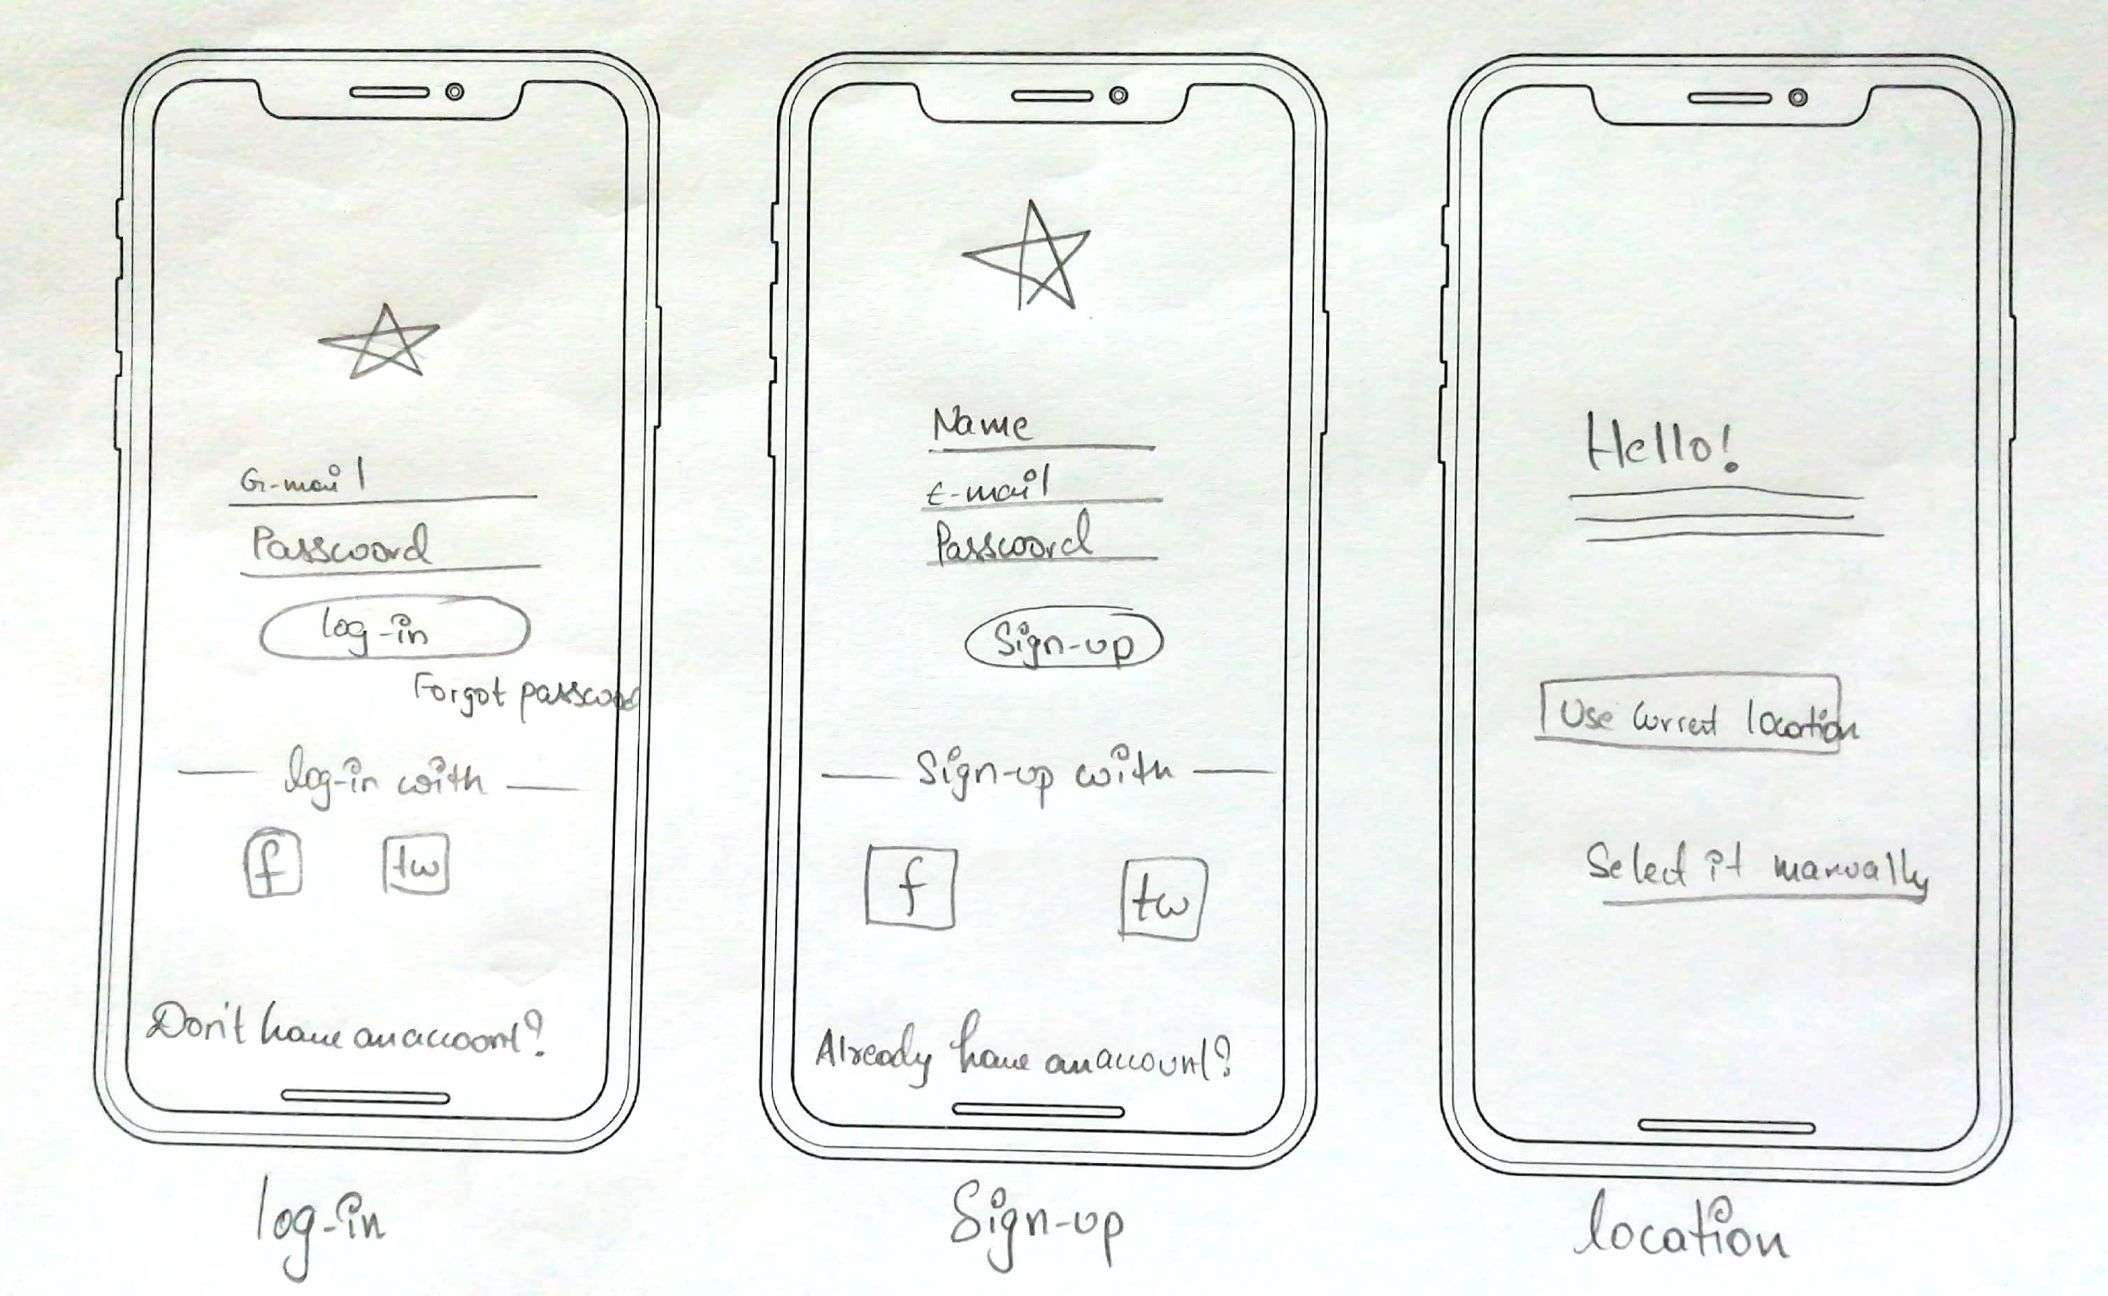 G-mail
Password
log-in
Forgot password
log-in with
f tw
Don't have an account?
log-in
Name
E-mail
Password
Sign-up
Sign-up with
f tw
Already have an account?
Sign-up
Hello!
Use Current location
Select it manually
location